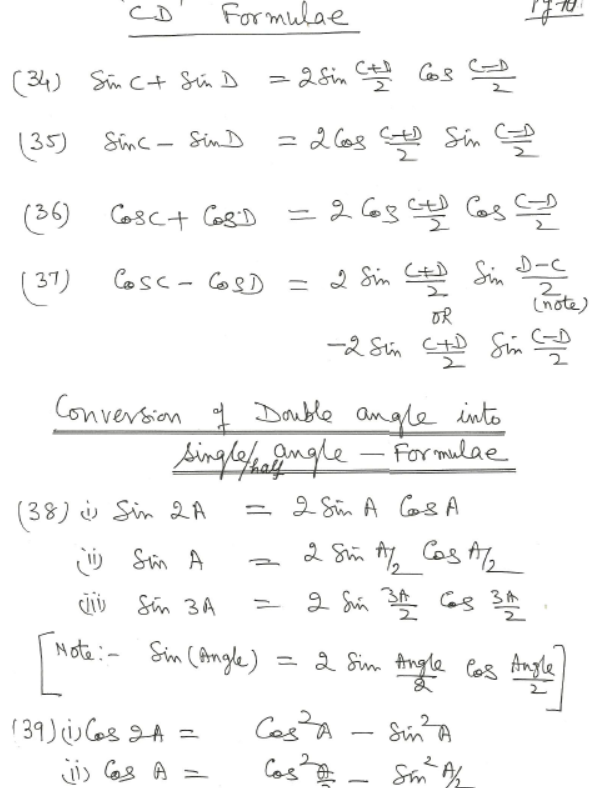 'CD' Formulae
(34) Sin C + Sin D = 2 Sin (C+D)/2 Cos (C-D)/2
(35) Sin C - Sin D = 2 Cos (C+D)/2 Sin (C-D)/2
(36) Cos C + Cos D = 2 Cos (C+D)/2 Cos (C-D)/2
(37) Cos C - Cos D = 2 Sin (C+D)/2 Sin (D-C)/2 (note)
OR
-2 Sin (C+D)/2 Sin (C-D)/2
Conversion of Double angle into
single/half angle - Formulae
(38) (i) Sin 2A = 2 Sin A Cos A
(ii) Sin A = 2 Sin A/2 Cos A/2
(iii) Sin 3A = 2 Sin 3A/2 Cos 3A/2
[Note:- Sin (Angle) = 2 Sin Angle/2 Cos Angle/2]
(39) (i) Cos 2A = Cos²A - Sin²A
(ii) Cos A = Cos² A/2 - Sin² A/2